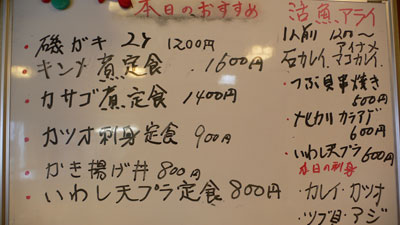 本日のおすすめ
・磯ガキ 2ケ 1200円
・キンメ煮定食 1600円
・カサゴ煮定食 1400円
・カツオ刺身定食 900円
・かき揚げ丼 800円
・いわし天プラ定食 800円
活魚アライ
1人前 1200〜
石カレイ、アイナメ
マコカレイ
・つぶ貝串焼き
500円
・メヒカリカラアゲ
600円
・いわし天プラ 600円
本日の刺身
・カレイ・カツオ
・ツブ貝・アジ